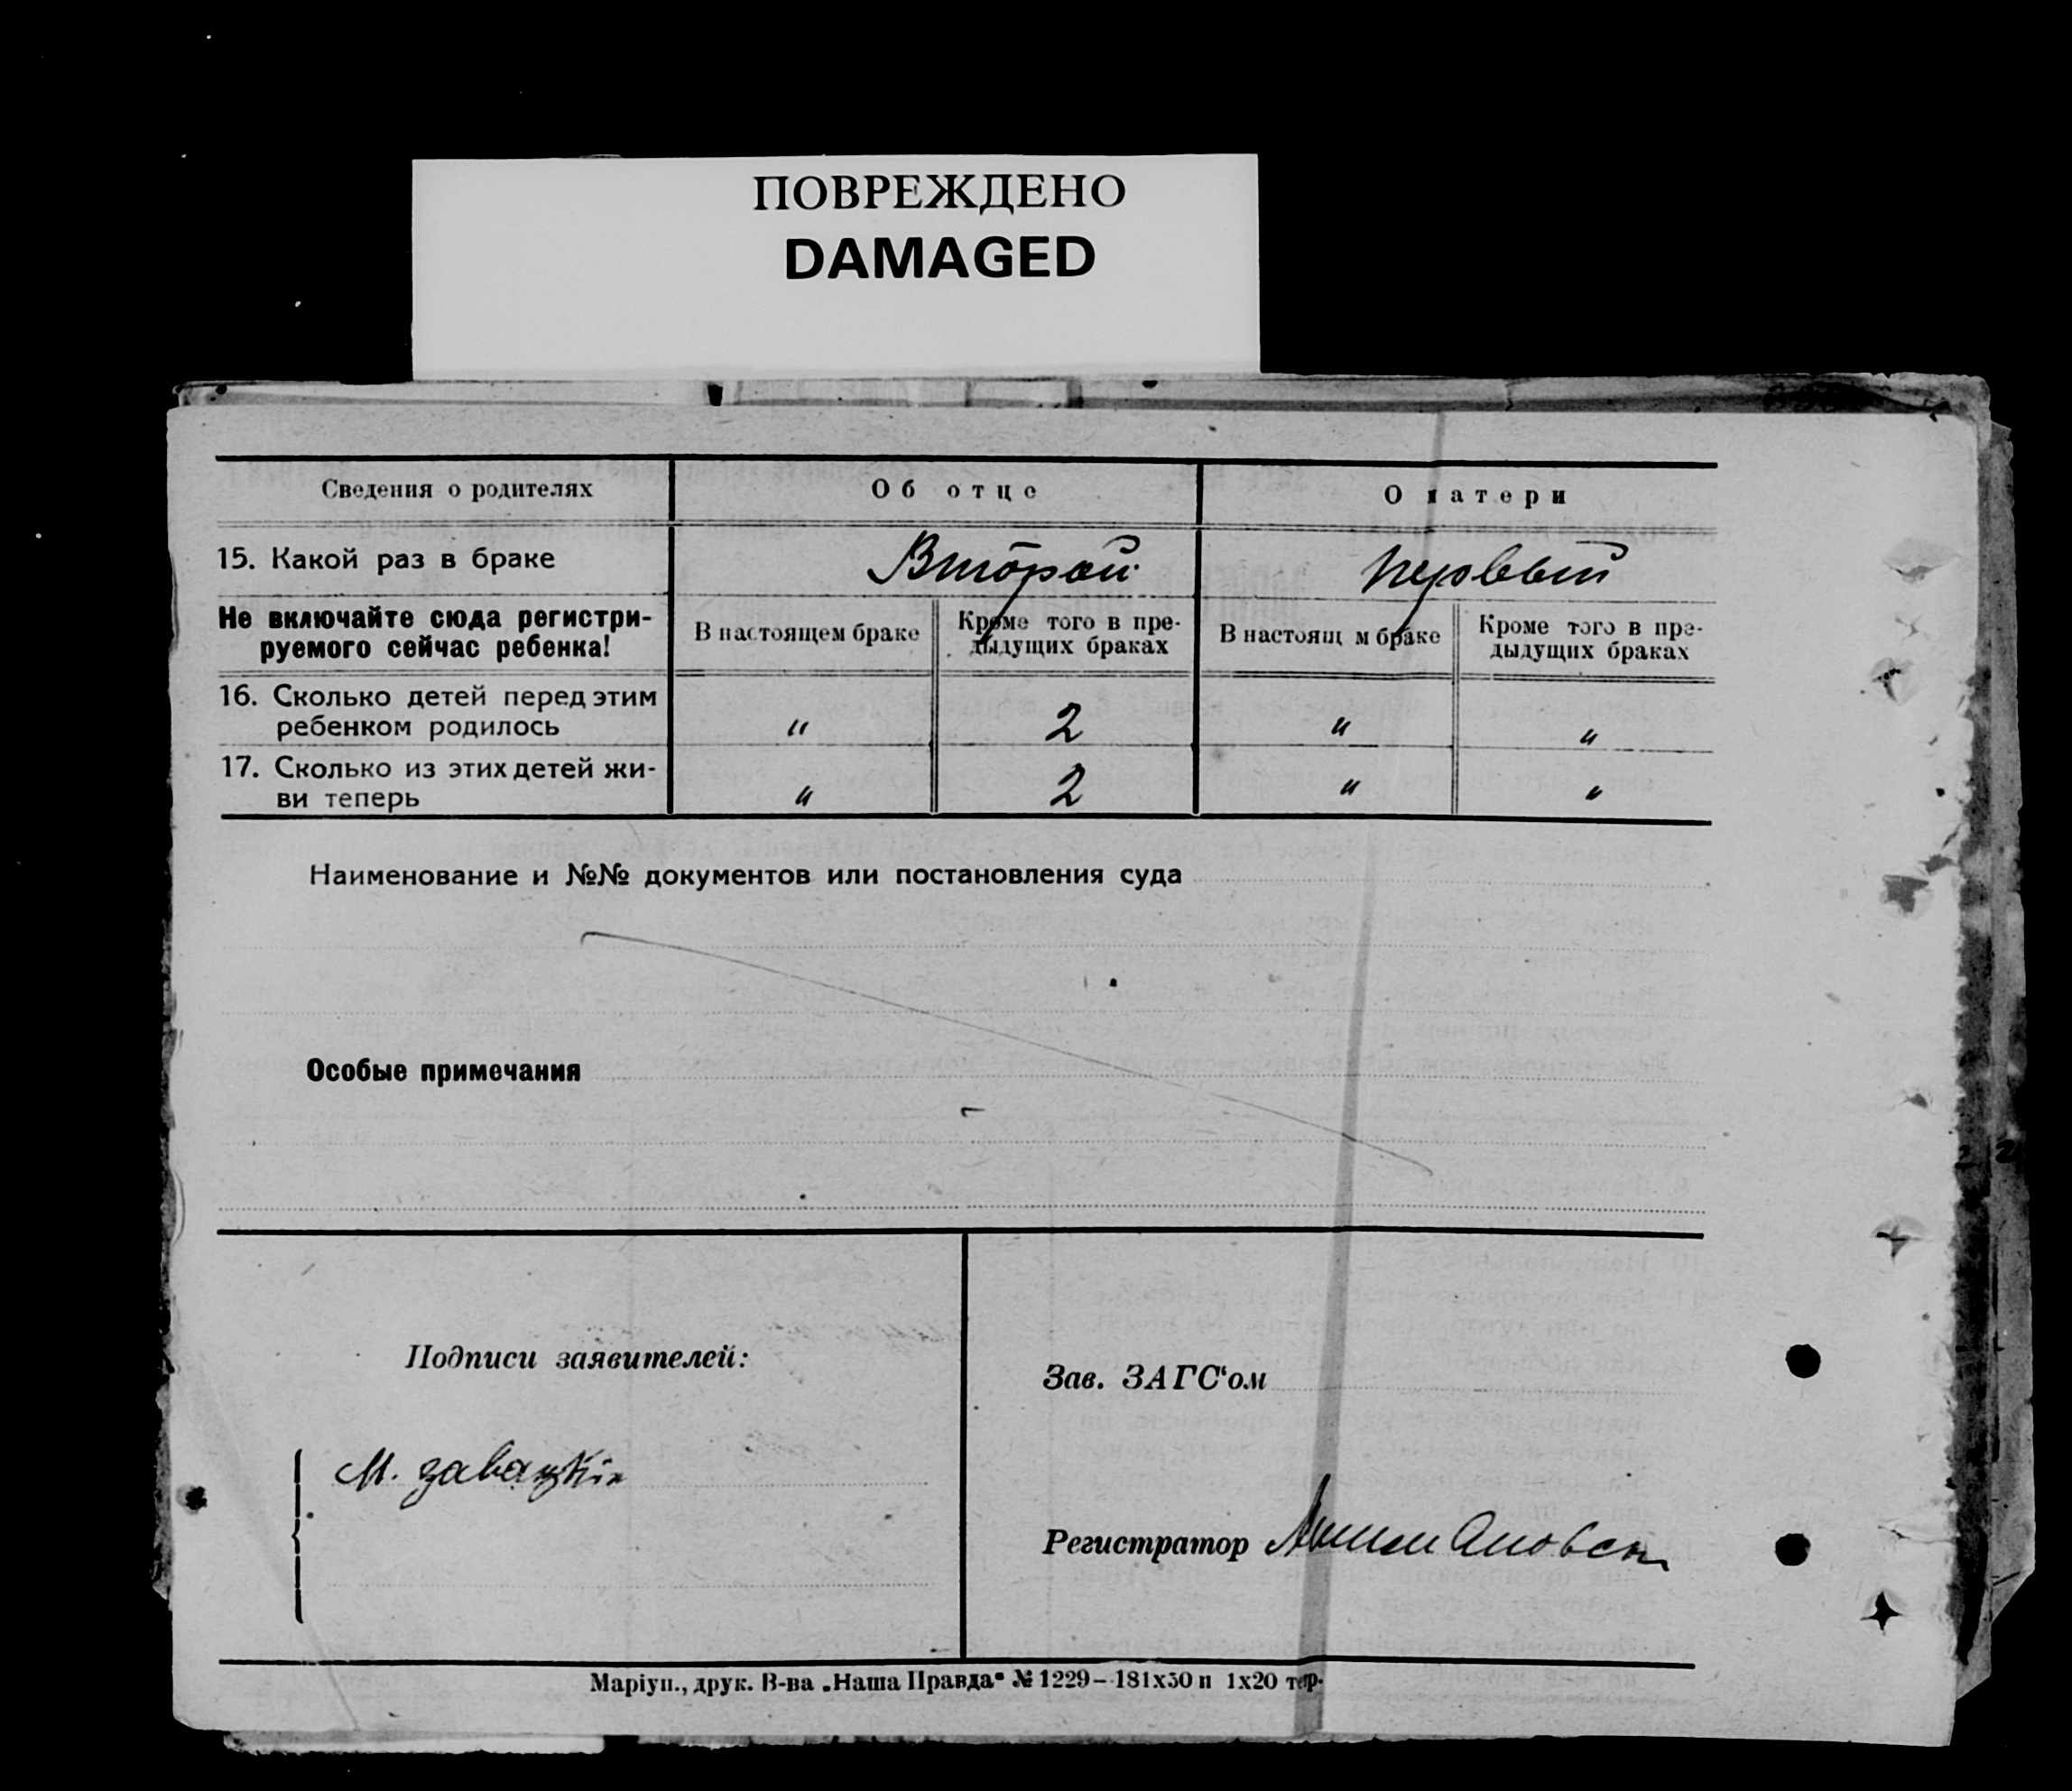 ПОВРЕЖДЕНО
DAMAGED
Сведения о родителях Об отце О матери
15. Какой раз в браке Второй первый
Не включайте сюда регистри-
руемого сейчас ребенка!
В настоящем браке Кроме того в пре-
дыдущих браках
В настоящ м браке Кроме того в пре-
дыдущих браках
16. Сколько детей перед этим
ребенком родилось „ 2 „ „
17. Сколько из этих детей жи-
ви теперь „ 2 „ „
Наименование и №№ документов или постановления суда
Особые примечания
Подписи заявителей:
Зав. ЗАГС‘ом
М. завацкій
Регистратор
Маріуп., друк. В-ва „Наша Правда“ № 1229–181х50 п 1х20 тер.